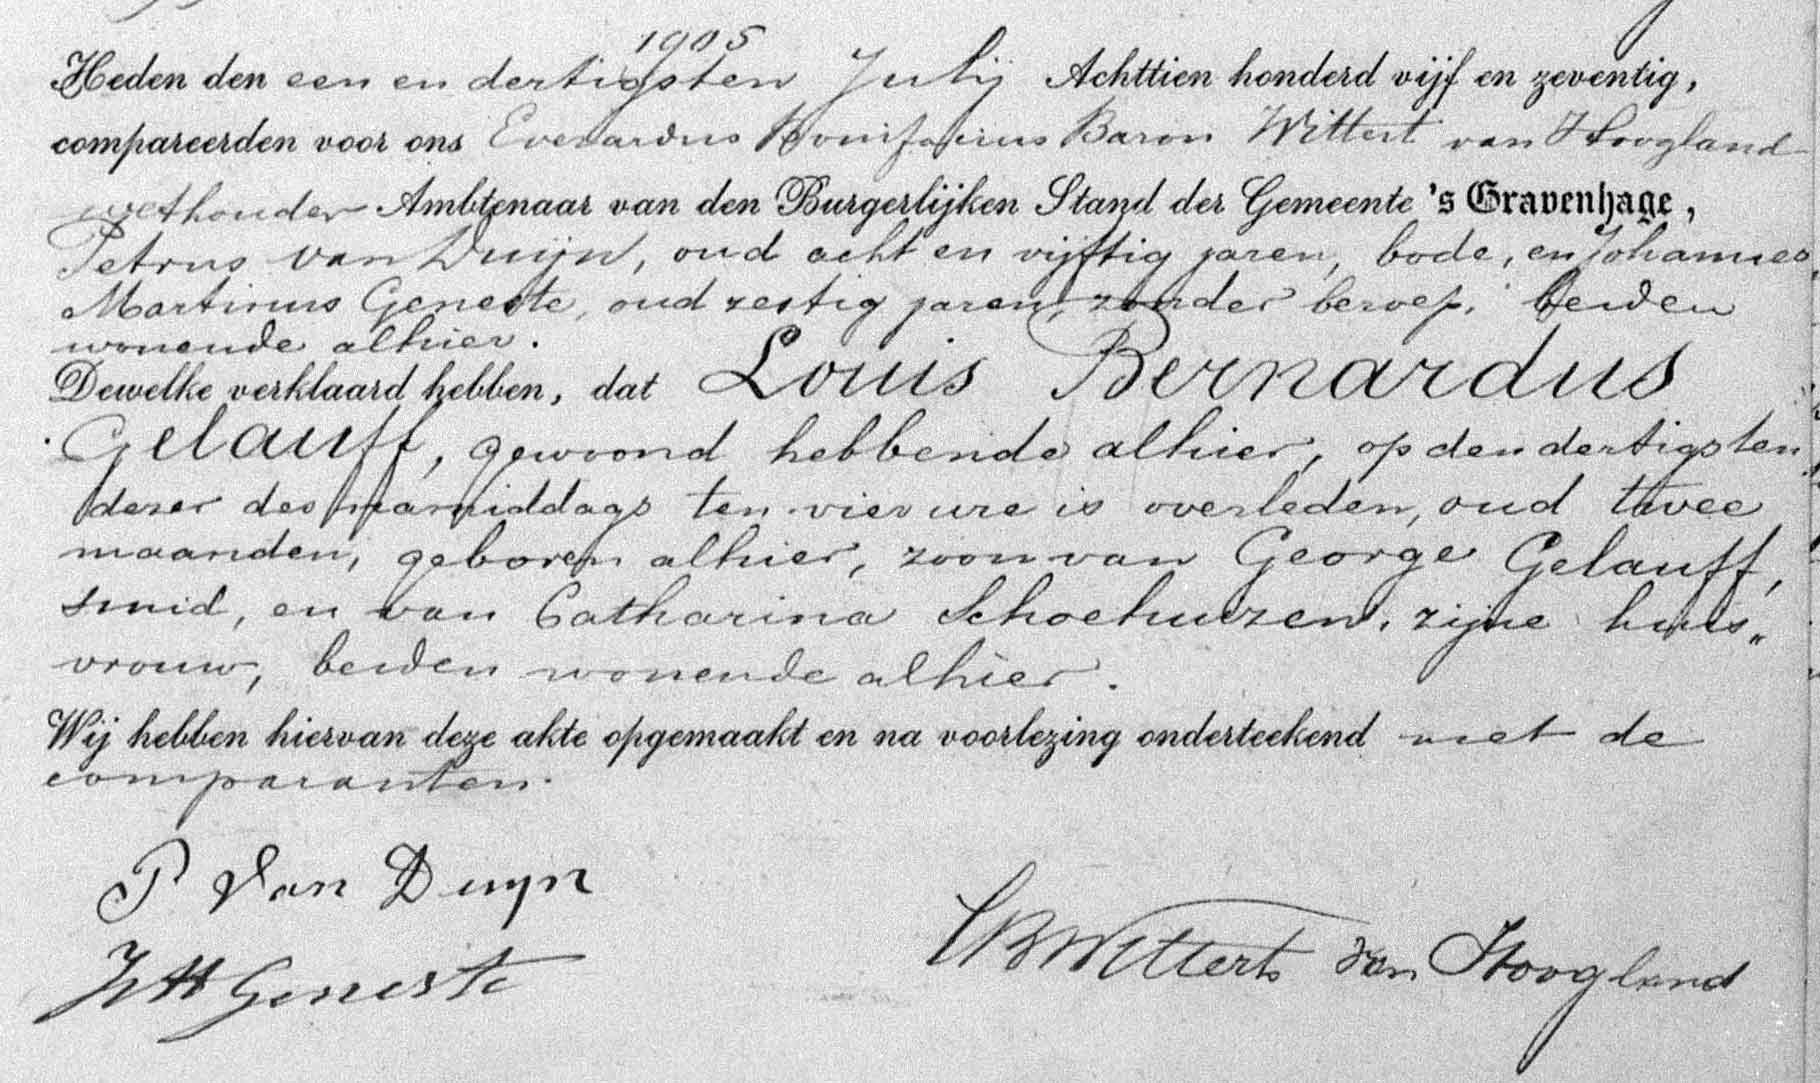 1905
Heden den een en dertigsten Julij Achttien honderd vijf en zeventig,
compareerden voor ons Everardus Bonifacius Baron Wittert van Hoogland
wethouder Ambtenaar van den Burgerlijken Stand der Gemeente 's Gravenhage,
Petrus van Duijn, oud acht en vijftig jaren, bode, en Johannes
Martinus Geneste, oud zestig jaren, zonder beroep, beiden
wonende alhier.
Dewelke verklaard hebben, dat Louis Bernardus
Gelauff, gewoond hebbende alhier, op den dertigsten
dezer des namiddags ten vier ure is overleden, oud twee
maanden, geboren alhier, zoon van George Gelauff,
smid, en van Catharina Schoehuizen, zijne huis„
vrouw, beiden wonende alhier.
Wij hebben hiervan deze akte opgemaakt en na voorlezing onderteekend met de
comparanten.
P van Duyn
Geneste
EB Wittert van Hoogland